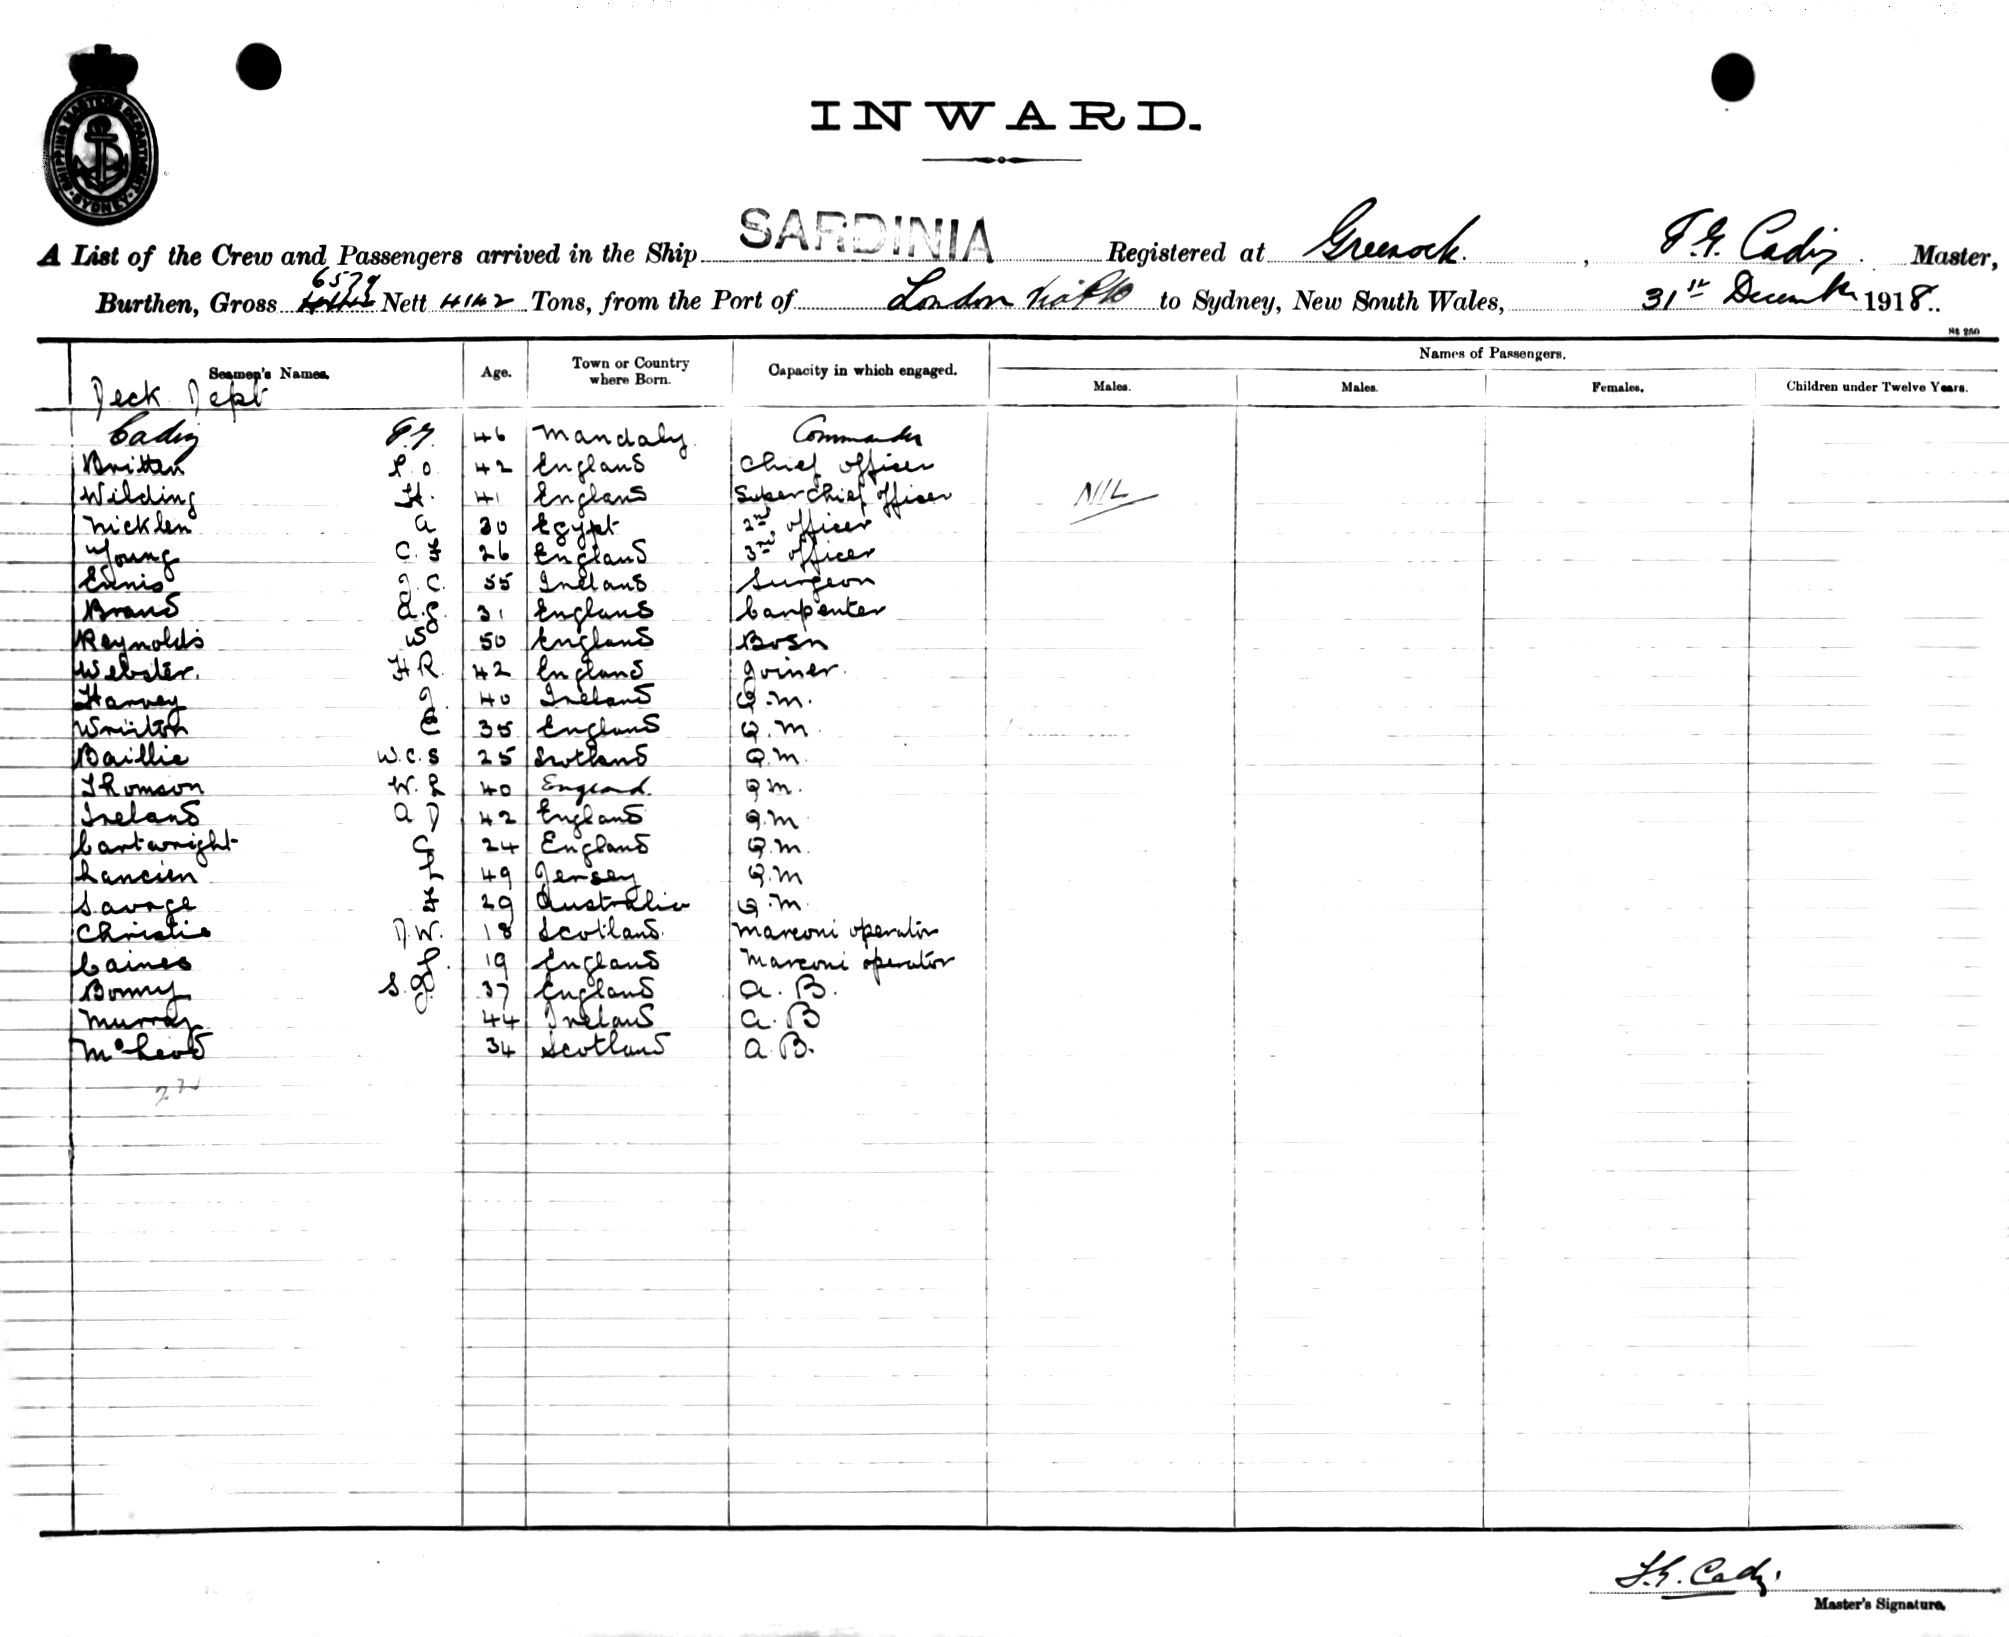 SHIPPING MASTERS DEPARTMENT
SYDNEY
INWARD.
A List of the Crew and Passengers arrived in the Ship SARDINIA Registered at Greenock. , F.G. Cadiz. Master,
6579
Burthen, Gross Nett 4142 Tons, from the Port of London to Sydney, New South Wales, 31st December 1918.
Seamen's Names. Age. Town or Country where Born. Capacity in which engaged. Names of Passengers.
Males. Males. Females. Children under Twelve Years.
Deck Dept
Cadiz F.G. 46 Mandaly Commander
Britten L.O. 42 England Chief officer
Wilding H. 41 England Super chief officer NIL
Nicklen A 30 Egypt 2nd officer
Young C. F 26 England 3rd officer
Ennis J.C. 55 Ireland Surgeon
Brand A.G. 31 England Carpenter
Reynolds W 50 England Bosn
Webster. H R. 42 England Joiner.
Harvey J 40 Ireland Q.M.
Writton E 35 England Q.M.
Baillie W.C.S 25 Scotland Q.M.
Thomson W. L 40 England. QM.
Ireland A D 42 England Q.M
Cartwright G 24 England Q.M.
Lancien L 49 Jersey Q.M
Savage F 29 Australia Q.M.
Christie D.W. 18 Scotland. Marconi operator
Caines L. 19 England Marconi operator
Bonny S.J. 37 England A. B.
Murray 44 Ireland A. B
McLeod 34 Scotland A. B.
22
F.G. Cadiz.
Master's Signature.